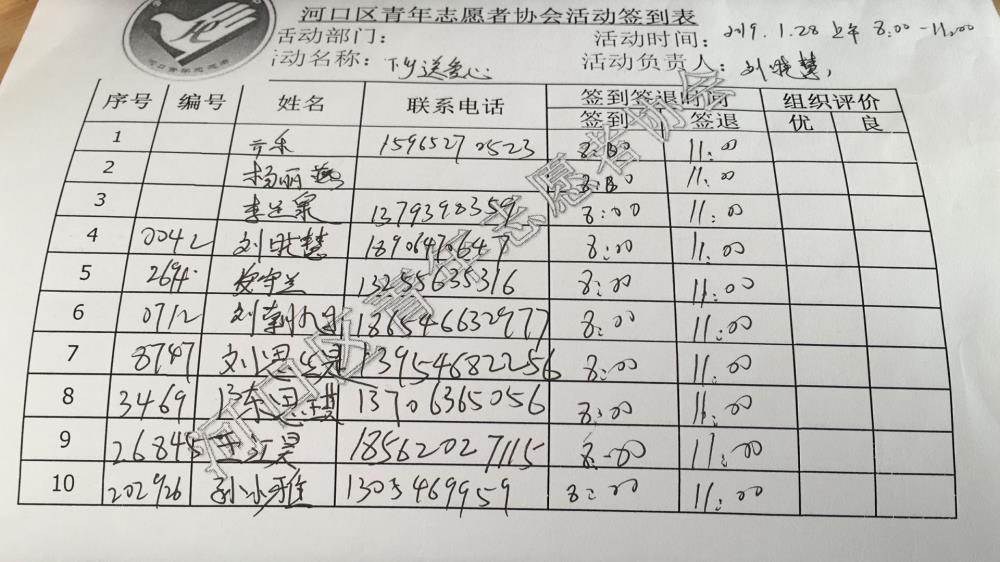 河口区青年志愿者协会活动签到表
活动部门： 活动时间：2019.1.28 上午 8:00-11:00
活动名称： 送爱心 活动负责人：刘晓慧
序号 编号 姓名 联系电话 签到签退时间 组织评价
签到 签退 优 良
1 15965270523 8:00 11:00
2 杨丽燕 8:00 11:00
3 1379398359 8:00 11:00
4 0042 刘晓慧 18906470647 8:00 11:00
5 2694 13255635316 8:00 11:00
6 0712 186546632977 8:00 11:00
7 8747 刘小思 13954682256 8:00 11:00
8 3469 13706365056 8:00 11:00
9 26845 王江昊 18562027115 8:00 11:00
10 202926 孙小雅 1305469959 8:00 11:00
河口区青年志愿者协会